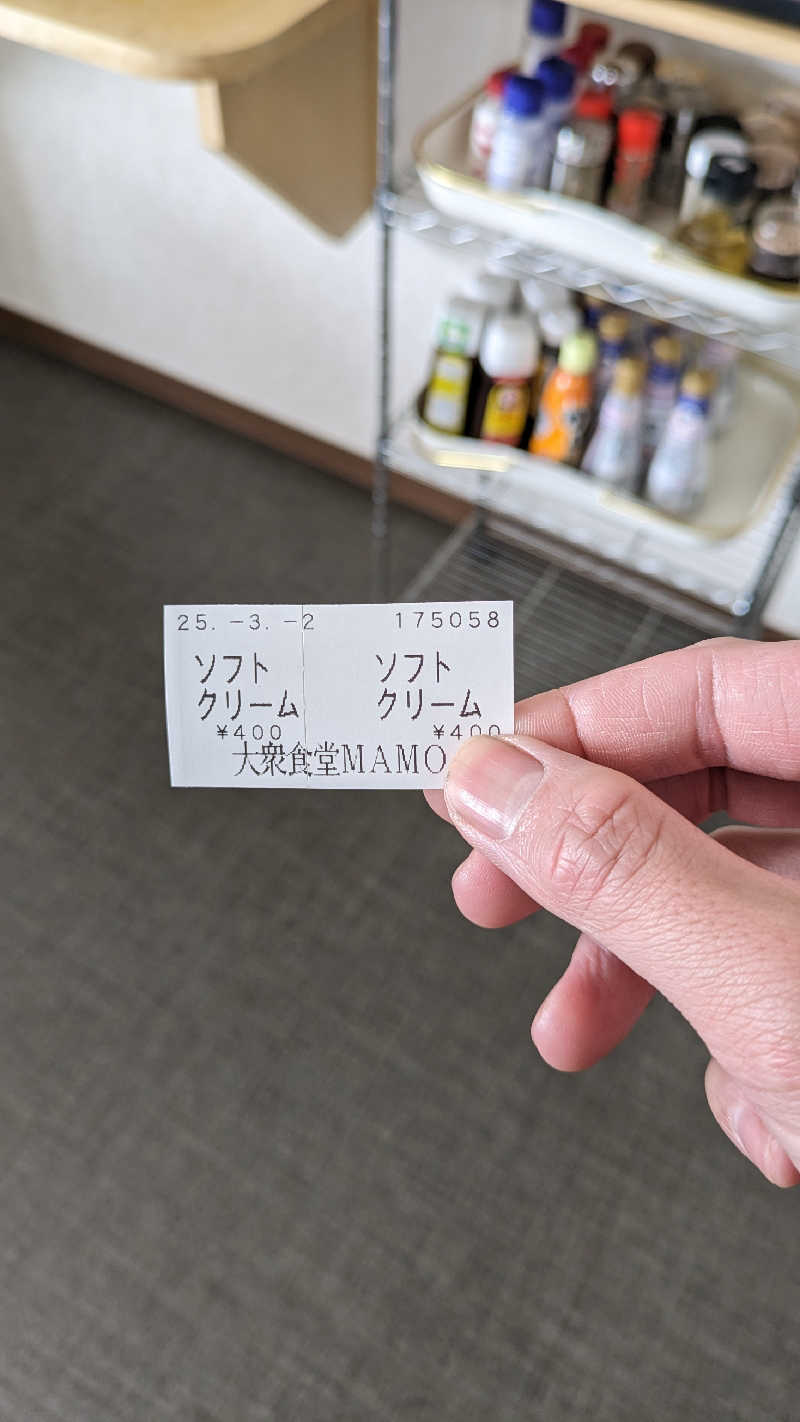 25. -3. -2 175058
ソフト ソフト
クリーム クリーム
¥400 ¥400
大衆食堂MAMO